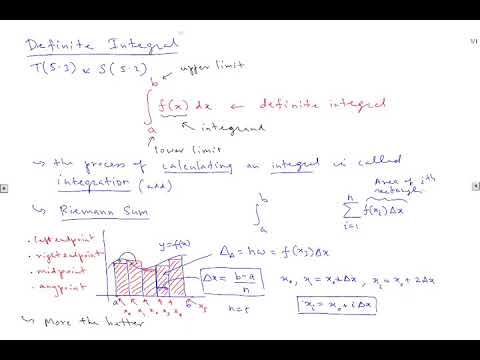 Definite Integral
T(5.3) & S(5.2)
upper limit
b
∫ f(x) dx ← definite integral
a
integrand
lower limit
↳ the process of calculating an integral is called
integration (add)
↳ Riemann Sum
Area of ith
rectangle
b n
∫ Σ f(xi)Δx
a i=1
• left endpoint
• right endpoint
• midpoint
• anypoint
y=f(x)
ΔA = hω = f(xi)Δx
Δx = b-a / n
n=5
x0, x1 = x0+Δx, x2 = x0+2Δx
xi = x0 + iΔx
a b
↳ More the better